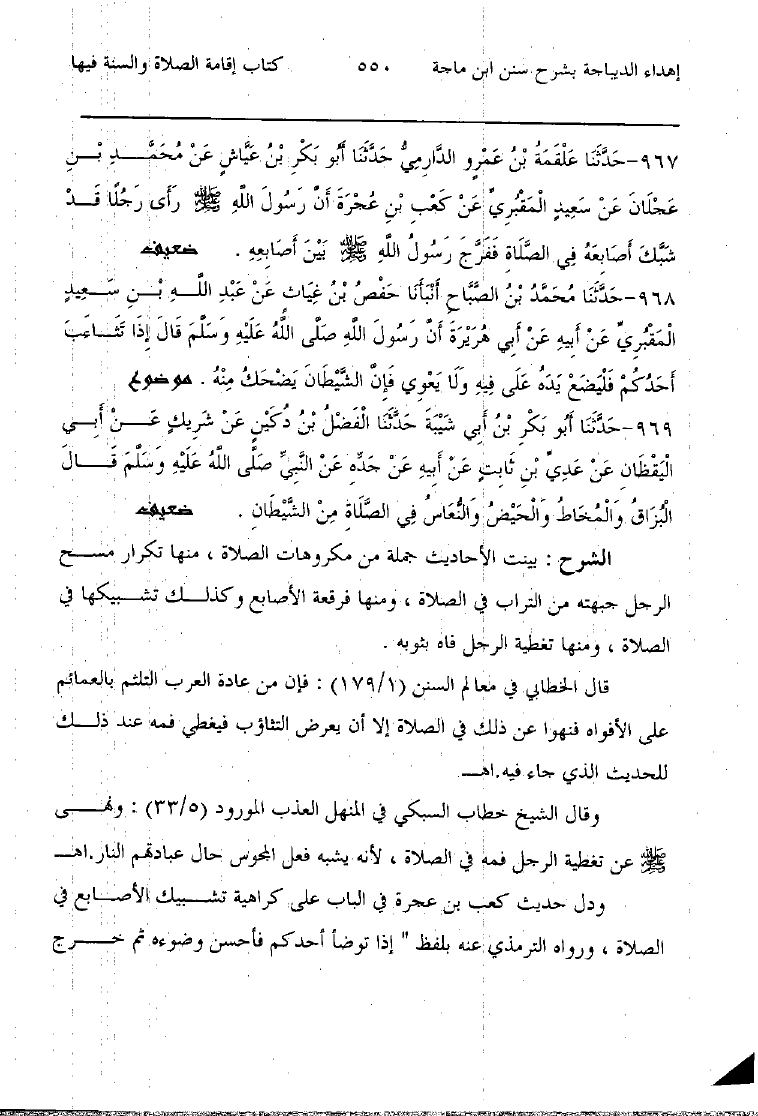 إهداء الديباجة بشرح سنن ابن ماجة ٥٥٠ كتاب إقامة الصلاة والسنة فيها
٩٦٧-حَدَّثَنَا عَلْقَمَةُ بْنُ عَمْرٍو الدَّارِمِيُّ حَدَّثَنَا أَبُو بَكْرِ بْنُ عَيَّاشٍ عَنْ مُحَمَّدِ بْنِ
عَجْلَانَ عَنْ سَعِيدٍ الْمَقْبُرِيِّ عَنْ كَعْبِ بْنِ عُجْرَةَ أَنَّ رَسُولَ اللَّهِ ﷺ رَأَى رَجُلًا قَدْ
شَبَّكَ أَصَابِعَهُ فِي الصَّلَاةِ فَفَرَّجَ رَسُولُ اللَّهِ ﷺ بَيْنَ أَصَابِعِهِ . ضعيف
٩٦٨-حَدَّثَنَا مُحَمَّدُ بْنُ الصَّبَّاحِ أَنْبَأَنَا حَفْصُ بْنُ غِيَاثٍ عَنْ عَبْدِ اللَّهِ بْنِ سَعِيدٍ
الْمَقْبُرِيِّ عَنْ أَبِيهِ عَنْ أَبِي هُرَيْرَةَ أَنَّ رَسُولَ اللَّهِ صَلَّى اللَّهُ عَلَيْهِ وَسَلَّمَ قَالَ إِذَا تَثَاءَبَ
أَحَدُكُمْ فَلْيَضَعْ يَدَهُ عَلَى فِيهِ وَلَا يَعْوِي فَإِنَّ الشَّيْطَانَ يَضْحَكُ مِنْهُ . موضوع
٩٦٩-حَدَّثَنَا أَبُو بَكْرِ بْنُ أَبِي شَيْبَةَ حَدَّثَنَا الْفَضْلُ بْنُ دُكَيْنٍ عَنْ شَرِيكٍ عَنْ أَبِي
الْيَقْظَانِ عَنْ عَدِيِّ بْنِ ثَابِتٍ عَنْ أَبِيهِ عَنْ جَدِّهِ عَنْ النَّبِيِّ صَلَّى اللَّهُ عَلَيْهِ وَسَلَّمَ قَالَ
الْبُزَاقُ وَالْمُخَاطُ وَالْحَيْضُ وَالنُّعَاسُ فِي الصَّلَاةِ مِنْ الشَّيْطَانِ . ضعيف
الشرح : بينت الأحاديث جملة من مكروهات الصلاة ، منها تكرار مسح
الرجل جبهته من التراب في الصلاة ، ومنها فرقعة الأصابع وكذلك تشبيكها في
الصلاة ، ومنها تغطية الرجل فاه بثوبه .
قال الخطابي في معالم السنن (١٧٩/١) : فإن من عادة العرب التلثم بالعمائم
على الأفواه فنهوا عن ذلك في الصلاة إلا أن يعرض التثاؤب فيغطي فمه عند ذلك
للحديث الذي جاء فيه.اهـ
وقال الشيخ خطاب السبكي في المنهل العذب المورود (٣٣/٥) : ونهى
ﷺ عن تغطية الرجل فمه في الصلاة ، لأنه يشبه فعل المجوس حال عبادتهم النار.اهـ
ودل حديث كعب بن عجرة في الباب على كراهية تشبيك الأصابع في
الصلاة ، ورواه الترمذي عنه بلفظ " إذا توضأ أحدكم فأحسن وضوءه ثم خرج